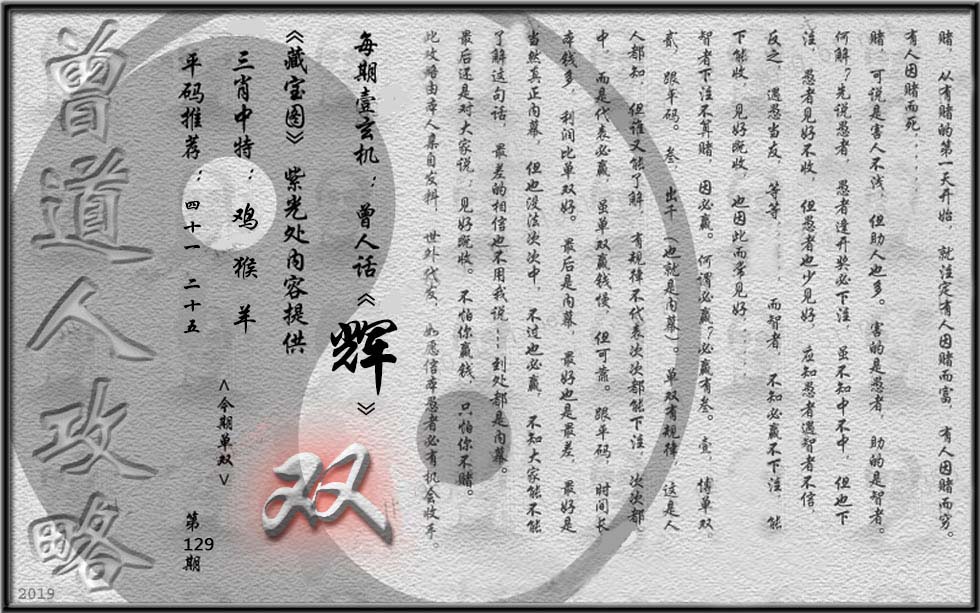 赌，从有赌的第一天开始，就注定有人因赌而富，有人因赌而穷。
有人因赌而死．．．．．．
赌，可说是害人不浅，但助人也多。害的是愚者，助的是智者。
何解？先说愚者，愚者逢开奖必下注，虽不知中不中，但也下
注，愚者见好不收，但愚者也少见好，应知愚者遇智者不信，
反之，遇愁当友，等等．．．．．．而智者，不知必赢不下注，能
下能收，见好既收，也因此而常见好．．．．．．
智者下注不算赌，因必赢。何谓必赢？必赢有叁。壹，博单双，
贰，跟平码。叁，出千（也就是内幕）。单双有规律，这是人
人都知，但谁又能了解，有规律不代表次次都能下注，次次都
中，而是代表必赢，虽单双赢钱慢，但可靠。跟平码，时间长，
本钱多，利润比单双好。最后是内幕，最好也是最差，最好是
当然真正内幕，但也没法次次中，不过也必赢，不知大家能不能
了解这句话，最差的相信也不用我说……到处都是内幕。
最后还是对大家说：见好既收。不怕你赢钱，只怕你不赌。
此攻略由本人集自发料，世外代发，如愿信本愚者必有机会收手。
每期壹玄机：曾人话《辉》
《藏宝图》紫光处内容提供
三肖中特：鸡 猴 羊
平码推荐：四十一 二十五
<今期单双>
双
第
129
期
曾道人攻略
2019